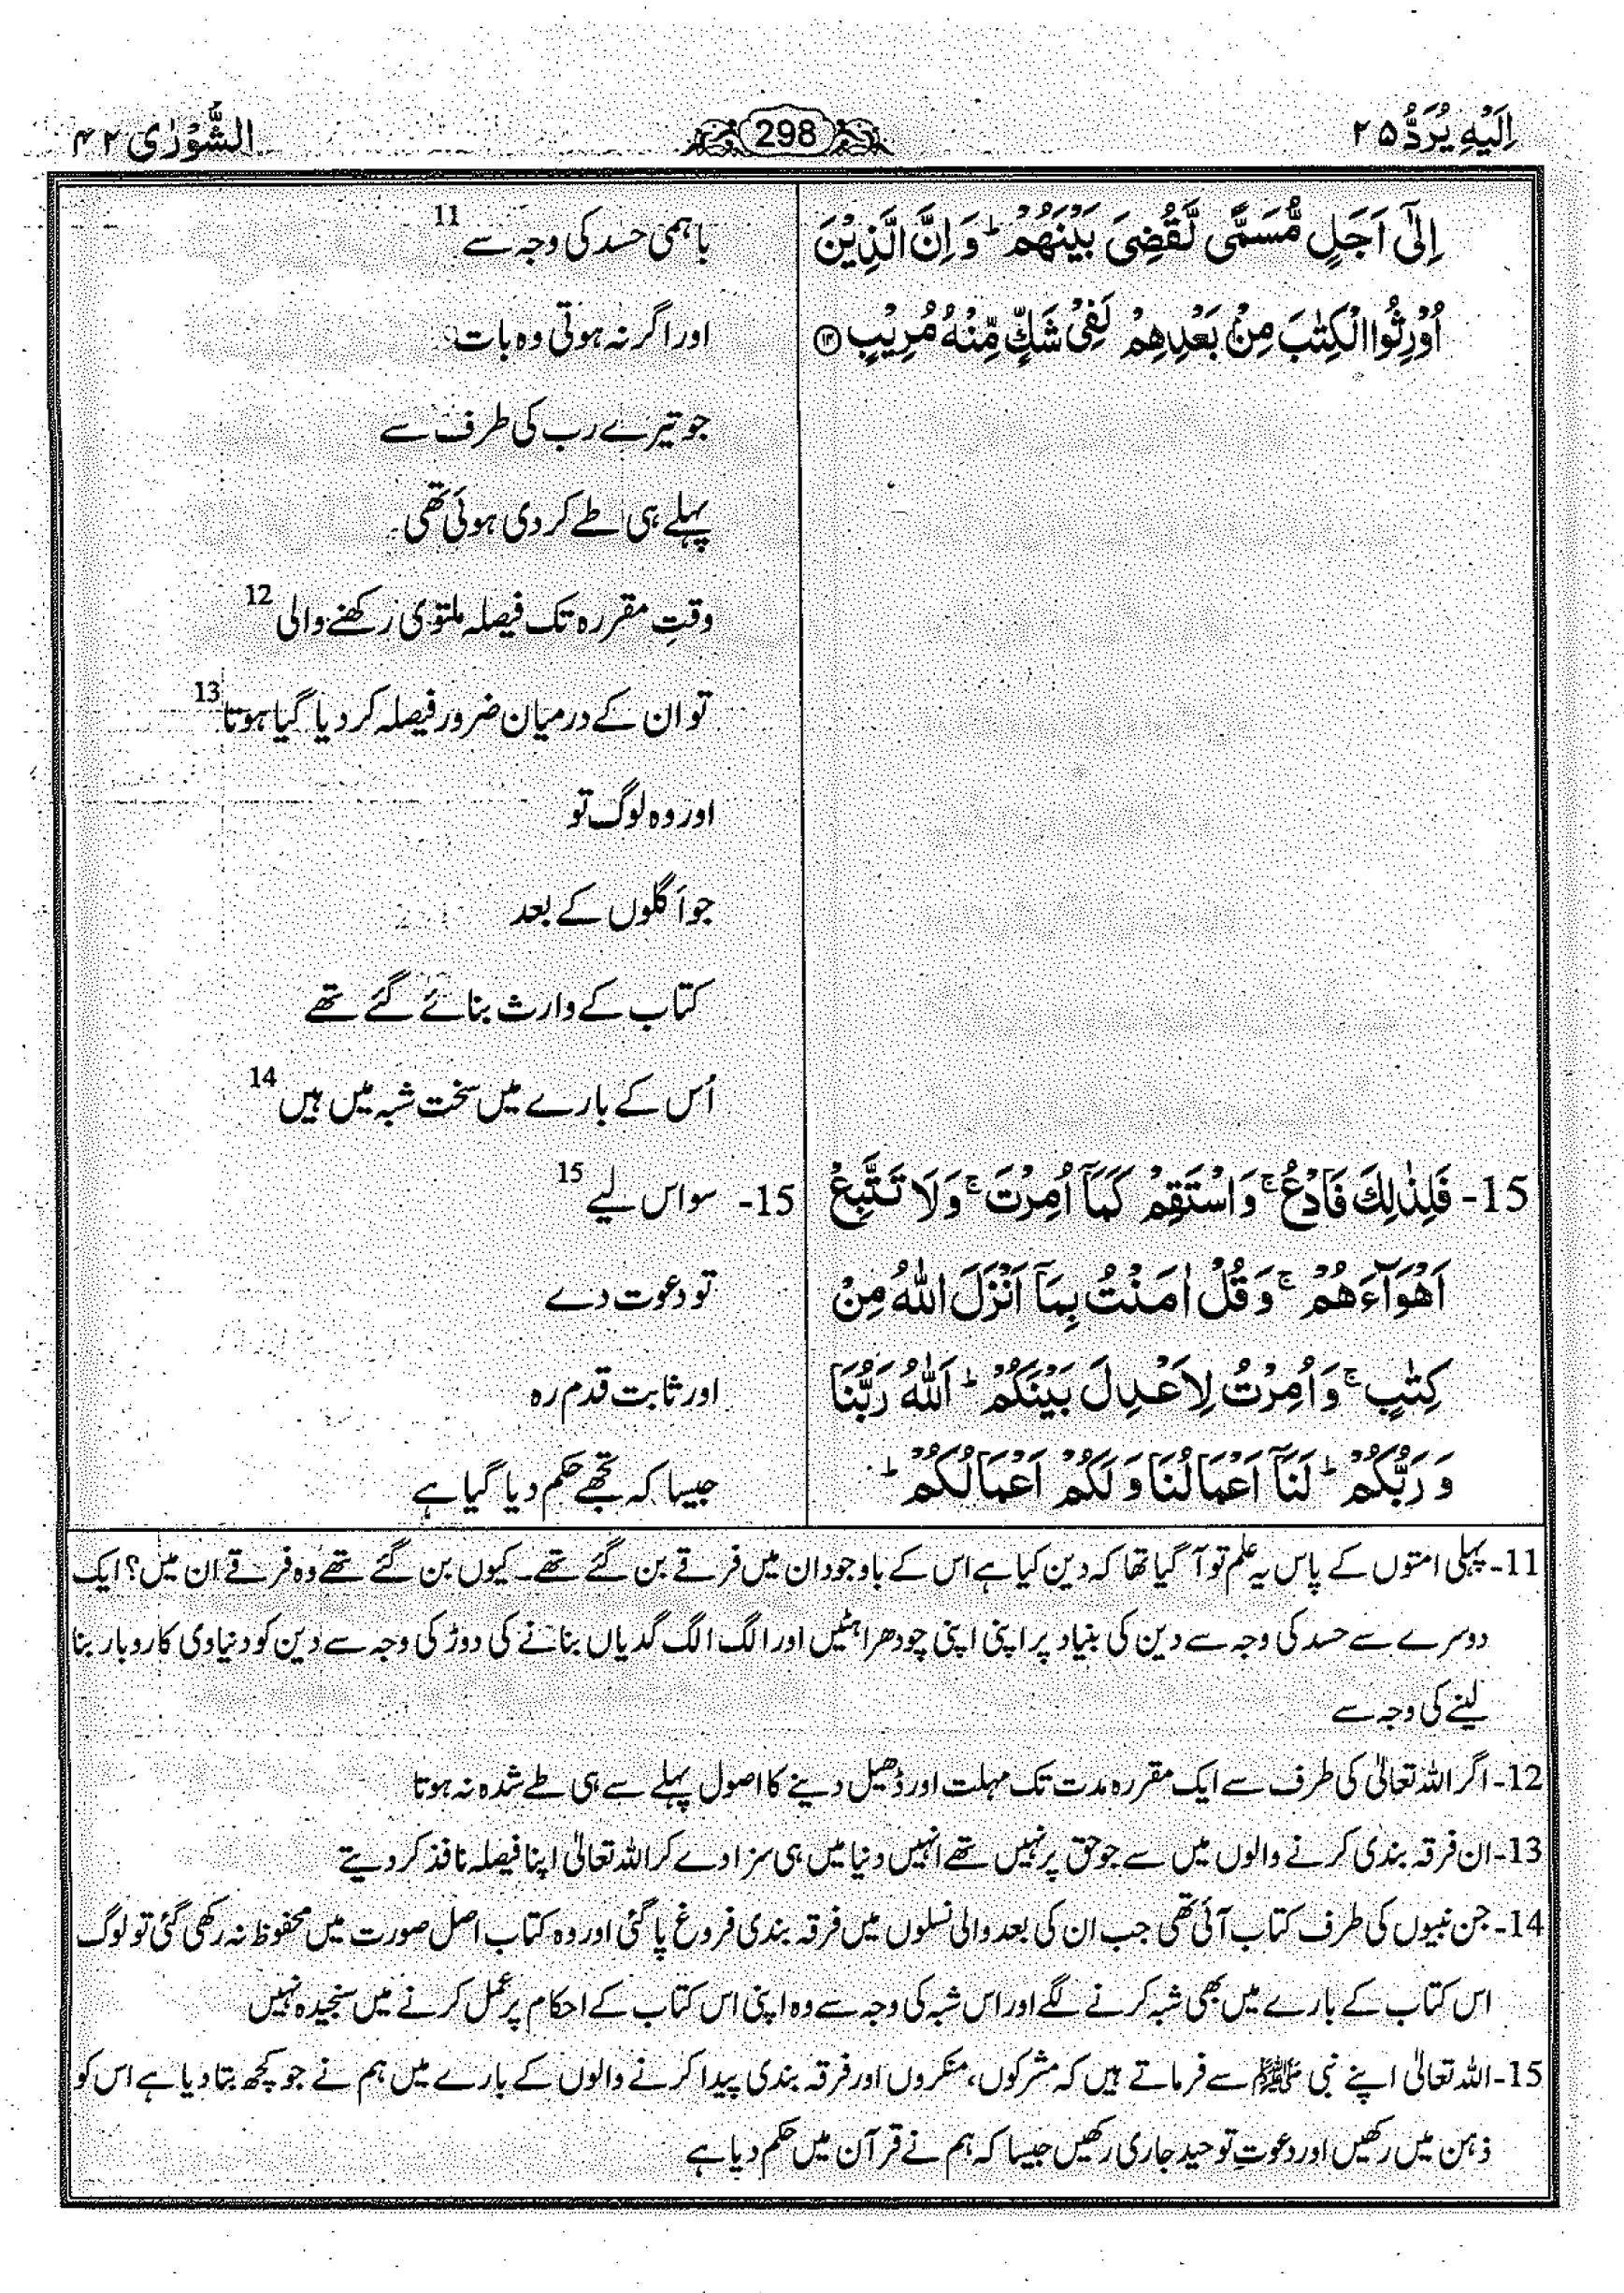 اِلَيْهِ يُرَدُّ ۲۵
298
الشُّوْرٰى ۴۲
اِلٰٓى اَجَلٍ مُّسَمًّى لَّقُضِىَ بَيْنَهُمْ ؕ وَ اِنَّ الَّذِيْنَ
اُوْرِثُوا الْكِتٰبَ مِنْۢ بَعْدِهِمْ لَفِىْ شَكٍّ مِّنْهُ مُرِيْبٍ ۝۱۴
15- فَلِذٰلِكَ فَادْعُ ۚ وَاسْتَقِمْ كَمَاۤ اُمِرْتَ ۚ وَلَا تَتَّبِعْ
اَهْوَآءَهُمْ ۚ وَقُلْ اٰمَنْتُ بِمَاۤ اَنْزَلَ اللّٰهُ مِنْ
كِتٰبٍ ۚ وَاُمِرْتُ لِاَعْدِلَ بَيْنَكُمْ ؕ اَللّٰهُ رَبُّنَا
وَ رَبُّكُمْ ؕ لَنَاۤ اَعْمَالُنَا وَلَكُمْ اَعْمَالُكُمْ ؕ
باہمی حسد کی وجہ سے 11
اور اگر نہ ہوتی وہ بات
جو تیرے رب کی طرف سے
پہلے ہی طے کر دی ہوئی تھی۔
وقتِ مقررہ تک فیصلہ ملتوی رکھنے والی 12
تو ان کے درمیان ضرور فیصلہ کر دیا گیا ہوتا 13
اور وہ لوگ تو
جو اَگلوں کے بعد
کتاب کے وارث بنائے گئے تھے
اُس کے بارے میں سخت شبہ میں ہیں 14
15- سو اس لیے 15
تو دعوت دے
اور ثابت قدم رہ
جیسا کہ تجھے حکم دیا گیا ہے
11- پہلی امتوں کے پاس یہ علم تو آ گیا تھا کہ دین کیا ہے اس کے باوجود ان میں فرقے بن گئے تھے۔ کیوں بن گئے تھے وہ فرقے ان میں؟ ایک
دوسرے سے حسد کی وجہ سے دین کی بنیاد پر اپنی اپنی چودھراہٹیں اور الگ الگ گدیاں بنانے کی دوڑ کی وجہ سے دین کو دنیاوی کاروبار بنا
لینے کی وجہ سے
12- اگر اللہ تعالیٰ کی طرف سے ایک مقررہ مدت تک مہلت اور ڈھیل دینے کا اصول پہلے سے ہی طے شدہ نہ ہوتا
13- ان فرقہ بندی کرنے والوں میں سے جو حق پر نہیں تھے انہیں دنیا میں ہی سزا دے کر اللہ تعالیٰ اپنا فیصلہ نافذ کر دیتے
14- جن نبیوں کی طرف کتاب آئی تھی جب ان کی بعد والی نسلوں میں فرقہ بندی فروغ پا گئی اور وہ کتاب اصل صورت میں محفوظ نہ رکھی گئی تو لوگ
اس کتاب کے بارے میں بھی شبہ کرنے لگے اور اس شبہ کی وجہ سے وہ اپنی اس کتاب کے احکام پر عمل کرنے میں سنجیدہ نہیں
15- اللہ تعالیٰ اپنے نبی ﷺ سے فرماتے ہیں کہ مشرکوں، منکروں اور فرقہ بندی پیدا کرنے والوں کے بارے میں ہم نے جو کچھ بتا دیا ہے اس کو
ذہن میں رکھیں اور دعوتِ توحید جاری رکھیں جیسا کہ ہم نے قرآن میں حکم دیا ہے